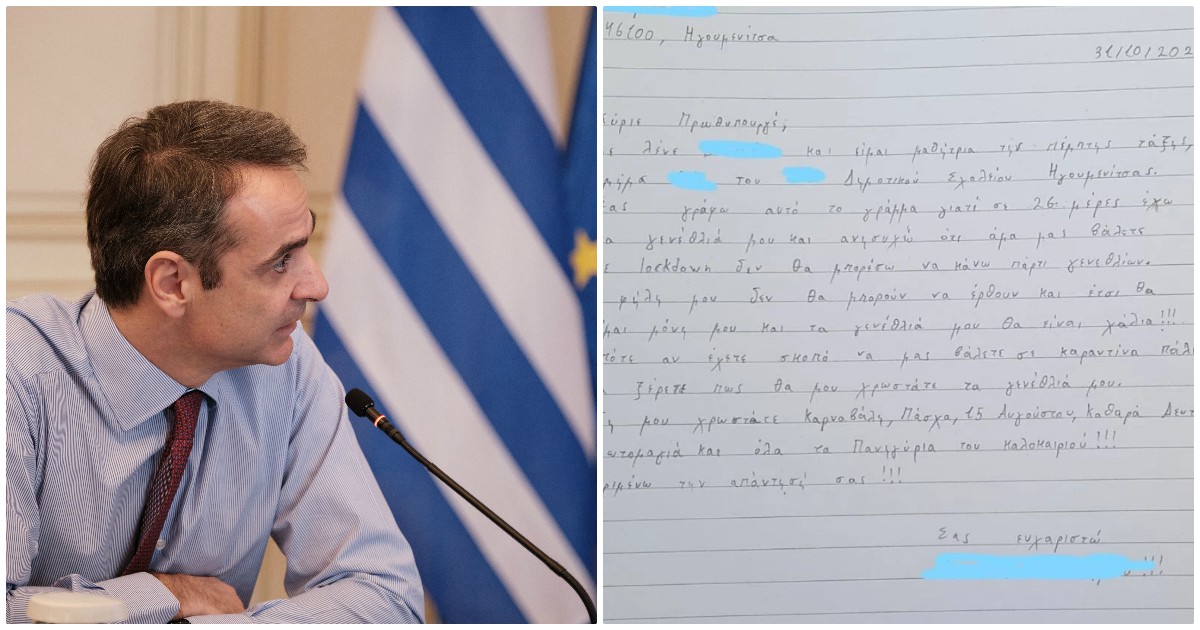 46100, Ηγουμενίτσα
31/10/202
ύριε Πρωθυπουργέ,
ε λένε και είμαι μαθήτρια της πέμπτης τάξης,
μήμα του Δημοτικού Σχολείου Ηγουμενίτσας.
ας γράφω αυτό το γράμμα γιατί σε 26 μέρες έχω
α γενέθλιά μου και ανησυχώ ότι άμα μας βάλετε
ε lockdown δεν θα μπορέσω να κάνω πάρτι γενεθλίων.
φίλη μου δεν θα μπορούν να έρθουν και έτσι θα
μαι μόνη μου και τα γενέθλιά μου θα είναι χάλια!!!
τότε αν έχετε σκοπό να μας βάλετε σε καραντίνα πάλι
ξέρετε πως θα μου χρωστάτε τα γενέθλιά μου.
μου χρωστάτε Καρναβάλη, Πάσχα, 15 Αυγούστου, Καθαρά Δευτ
ωτομαγιά και όλα τα Πανηγύρια του καλοκαιριού!!!
ριμένω την απάντησή σας!!!
Σας ευχαριστώ
!!!